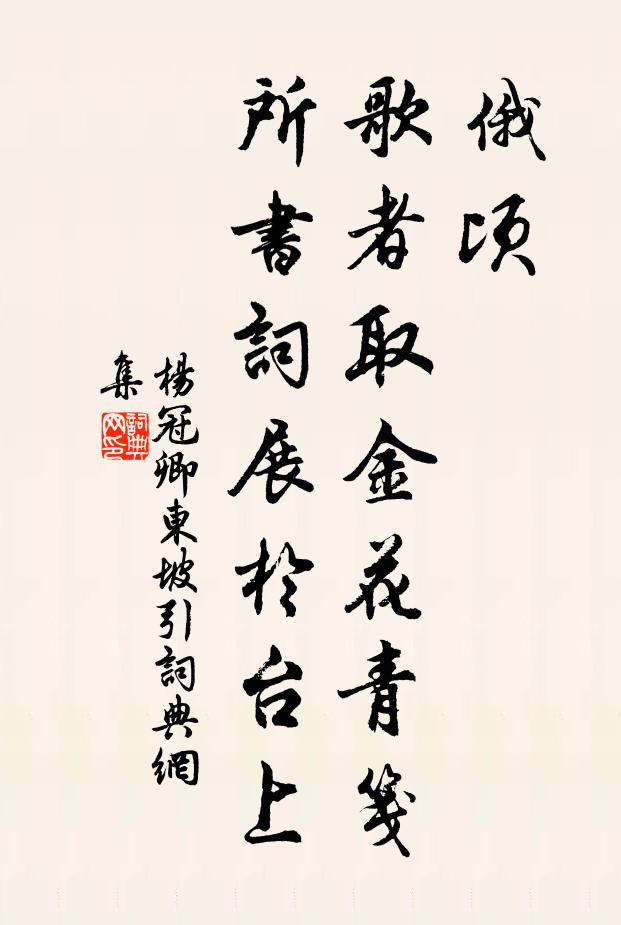 俄頃
歌者取金花青箋
所書詞展於台上
楊冠卿東坡引詞典網
集
詞典
网印